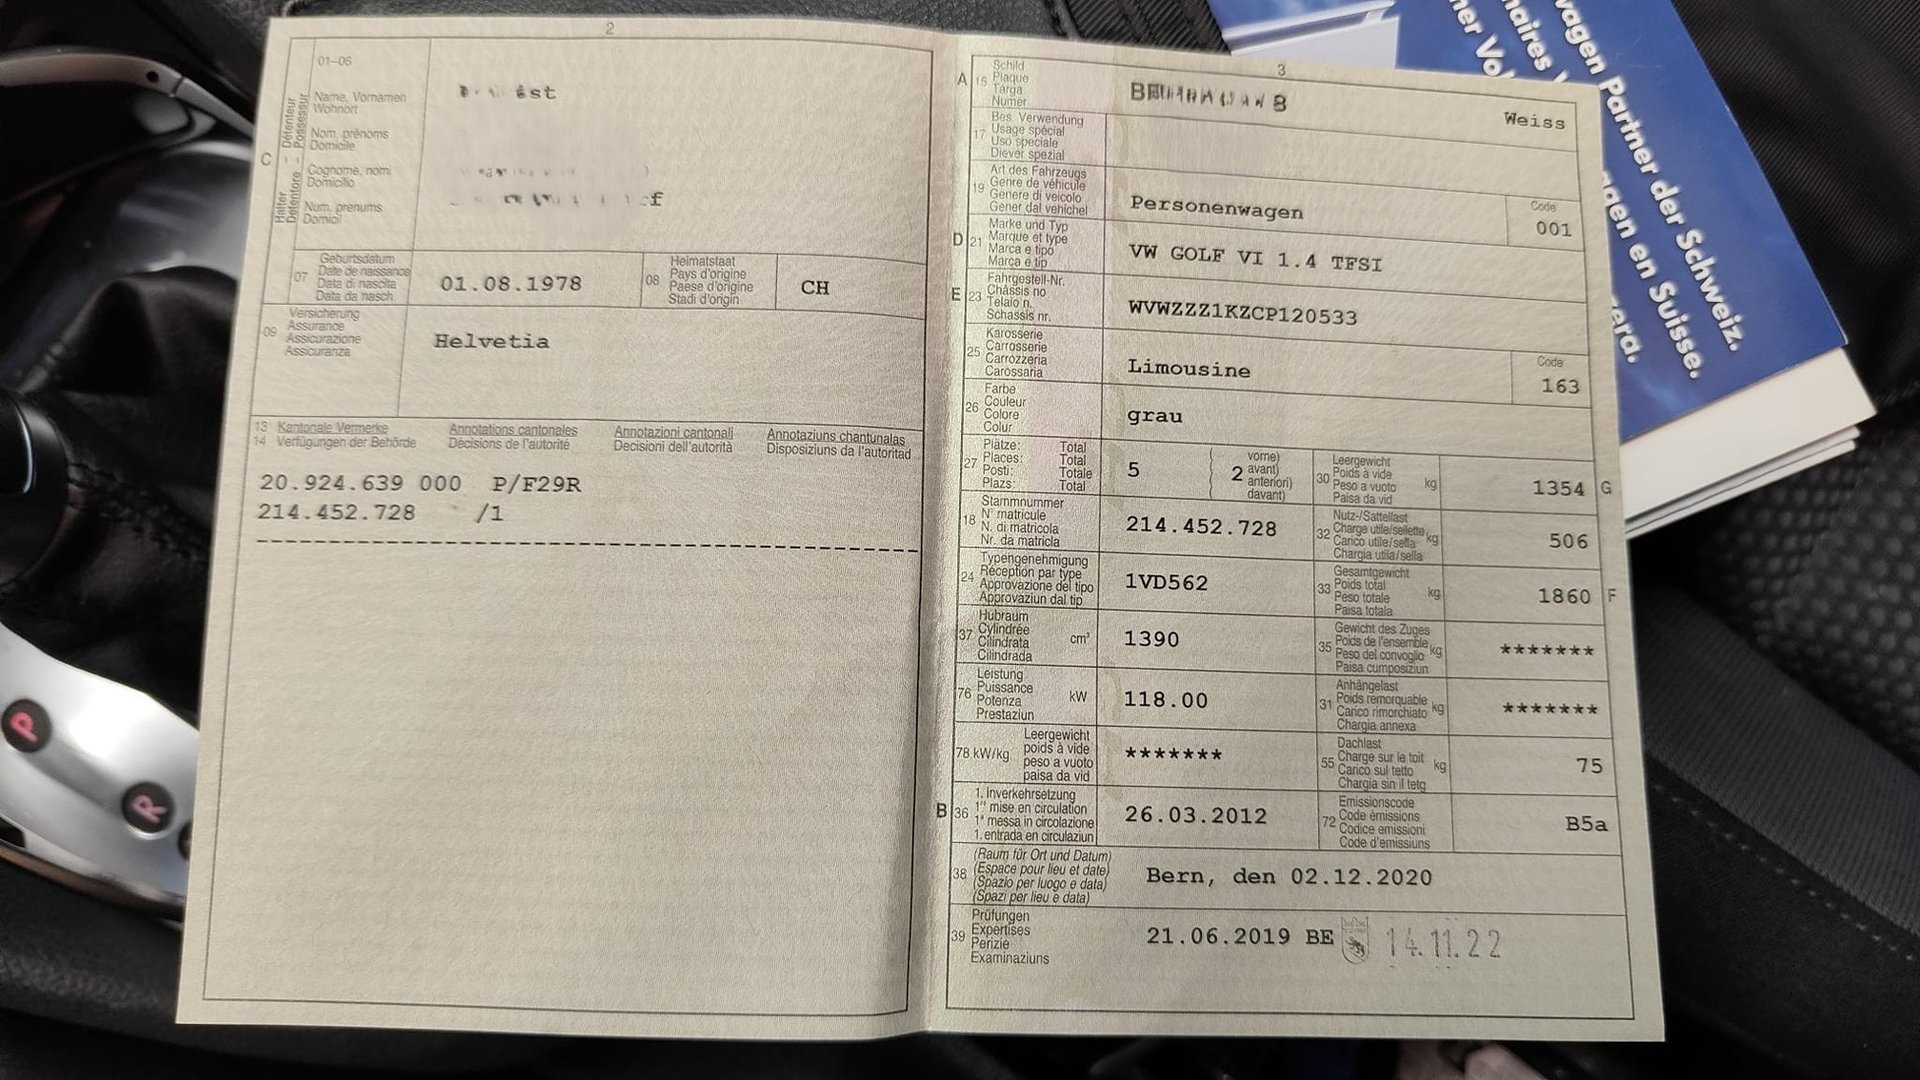 2
01–06
Name, Vornamen
Wohnort
Nom, prénoms
Domicile
Cognome, nomi
Domicilio
Num, prenums
Domicil
C
Halter Détenteur
Detentore Possessur
07
Geburtsdatum
Date de naissance
Data di nascita
Data da nasch.
01.08.1978
08
Heimatstaat
Pays d'origine
Paese d'origine
Stadi d'origin
CH
09
Versicherung
Assurance
Assicurazione
Assicuranza
Helvetia
13 Kantonale Vermerke Annotations cantonales Annotazioni cantonali Annotaziuns chantunalas
14 Verfügungen der Behörde Décisions de l'autorité Decisioni dell'autorità Disposiziuns da l'autoritad
20.924.639 000 P/F29R
214.452.728 /1
3
A 15
Schild
Plaque
Targa
Numer
Weiss
17
Bes. Verwendung
Usage spécial
Uso speciale
Diever spezial
19
Art des Fahrzeugs
Genre de véhicule
Genere di veicolo
Gener dal vehichel
Personenwagen
Code
001
D 21
Marke und Typ
Marque et type
Marca e tipo
Marca e tip
VW GOLF VI 1.4 TFSI
E 23
Fahrgestell-Nr.
Châssis no
Telaio n.
Schassis nr.
WVWZZZ1KZCP120533
25
Karosserie
Carrosserie
Carrozzeria
Carossaria
Limousine
Code
163
26
Farbe
Couleur
Colore
Colur
grau
27
Plätze: Total
Places: Total
Posti: Totale
Plazs: Total
5
2
vorne)
avant)
anteriori)
davant)
30
Leergewicht
Poids à vide
Peso a vuoto
Paisa da vid
kg
1354 G
18
Stammnummer
N° matricule
N. di matricola
Nr. da matricla
214.452.728
32
Nutz-/Sattellast
Charge utile/sellette
Carico utile/sella
Chargia utila/sella
kg
506
24
Typengenehmigung
Réception par type
Approvazione del tipo
Approvaziun dal tip
1VD562
33
Gesamtgewicht
Poids total
Peso totale
Paisa totala
kg
1860 F
37
Hubraum
Cylindrée
Cilindrata
Cilindrada
cm³
1390
35
Gewicht des Zuges
Poids de l'ensemble
Peso del convoglio
Paisa cumposiziun
kg
*******
76
Leistung
Puissance
Potenza
Prestaziun
kW
118.00
31
Anhängelast
Poids remorquable
Carico rimorchiato
Chargia annexa
kg
*******
78 kW/kg
Leergewicht
poids à vide
peso a vuoto
paisa da vid
*******
55
Dachlast
Charge sur le toit
Carico sul tetto
Chargia sin il tetg
kg
75
B 36
1. Inverkehrsetzung
1re mise en circulation
1a messa in circolazione
1. entrada en circulaziun
26.03.2012
72
Emissionscode
Code émissions
Codice emissioni
Code d'emissiuns
B5a
38
(Raum für Ort und Datum)
(Espace pour lieu et date)
(Spazio per luogo e data)
(Spazi per lieu e data)
Bern, den 02.12.2020
39
Prüfungen
Expertises
Perizie
Examinaziuns
21.06.2019 BE 14.11.22
wagen Partner der Schweiz.
gen en Suisse.
zera.
P
R